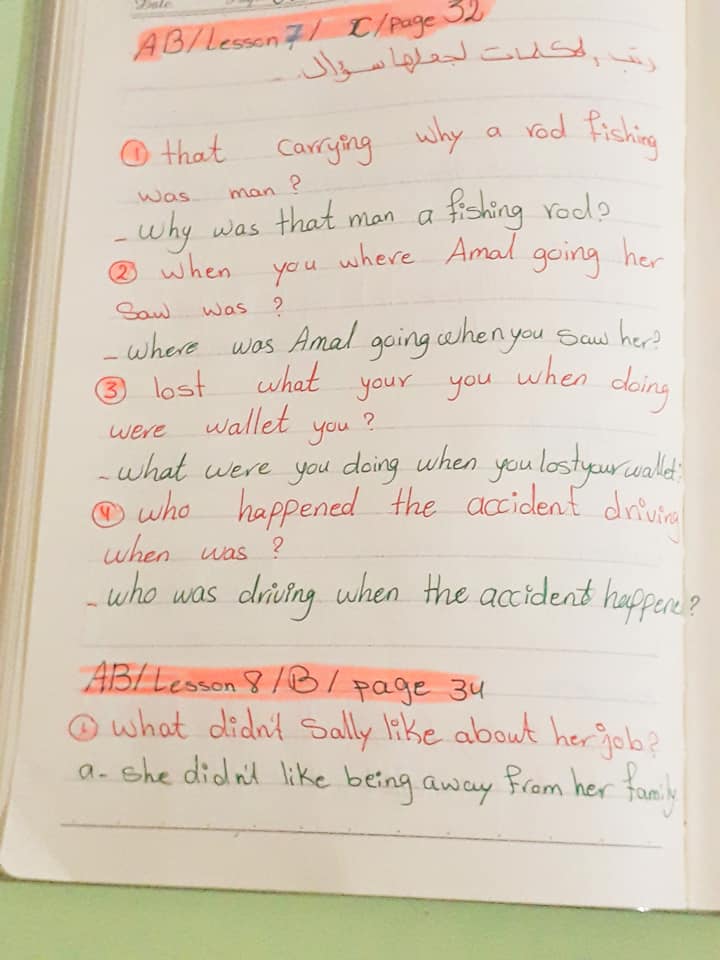 Date
AB/Lesson 7/ C/page 32
رتب الكلمات لجعلها سؤال
① that carrying why a rod fishing
was man?
- Why was that man a fishing rod?
② when you where Amal going her
saw was ?
- where was Amal going when you saw her?
③ lost what your you when doing
were wallet you?
- what were you doing when you lost your wallet?
④ who happened the accident driving
when was ?
- who was driving when the accident happene?
AB/Lesson 8/B/ page 34
① what didn't Sally like about her job?
a- she didn't like being away from her family